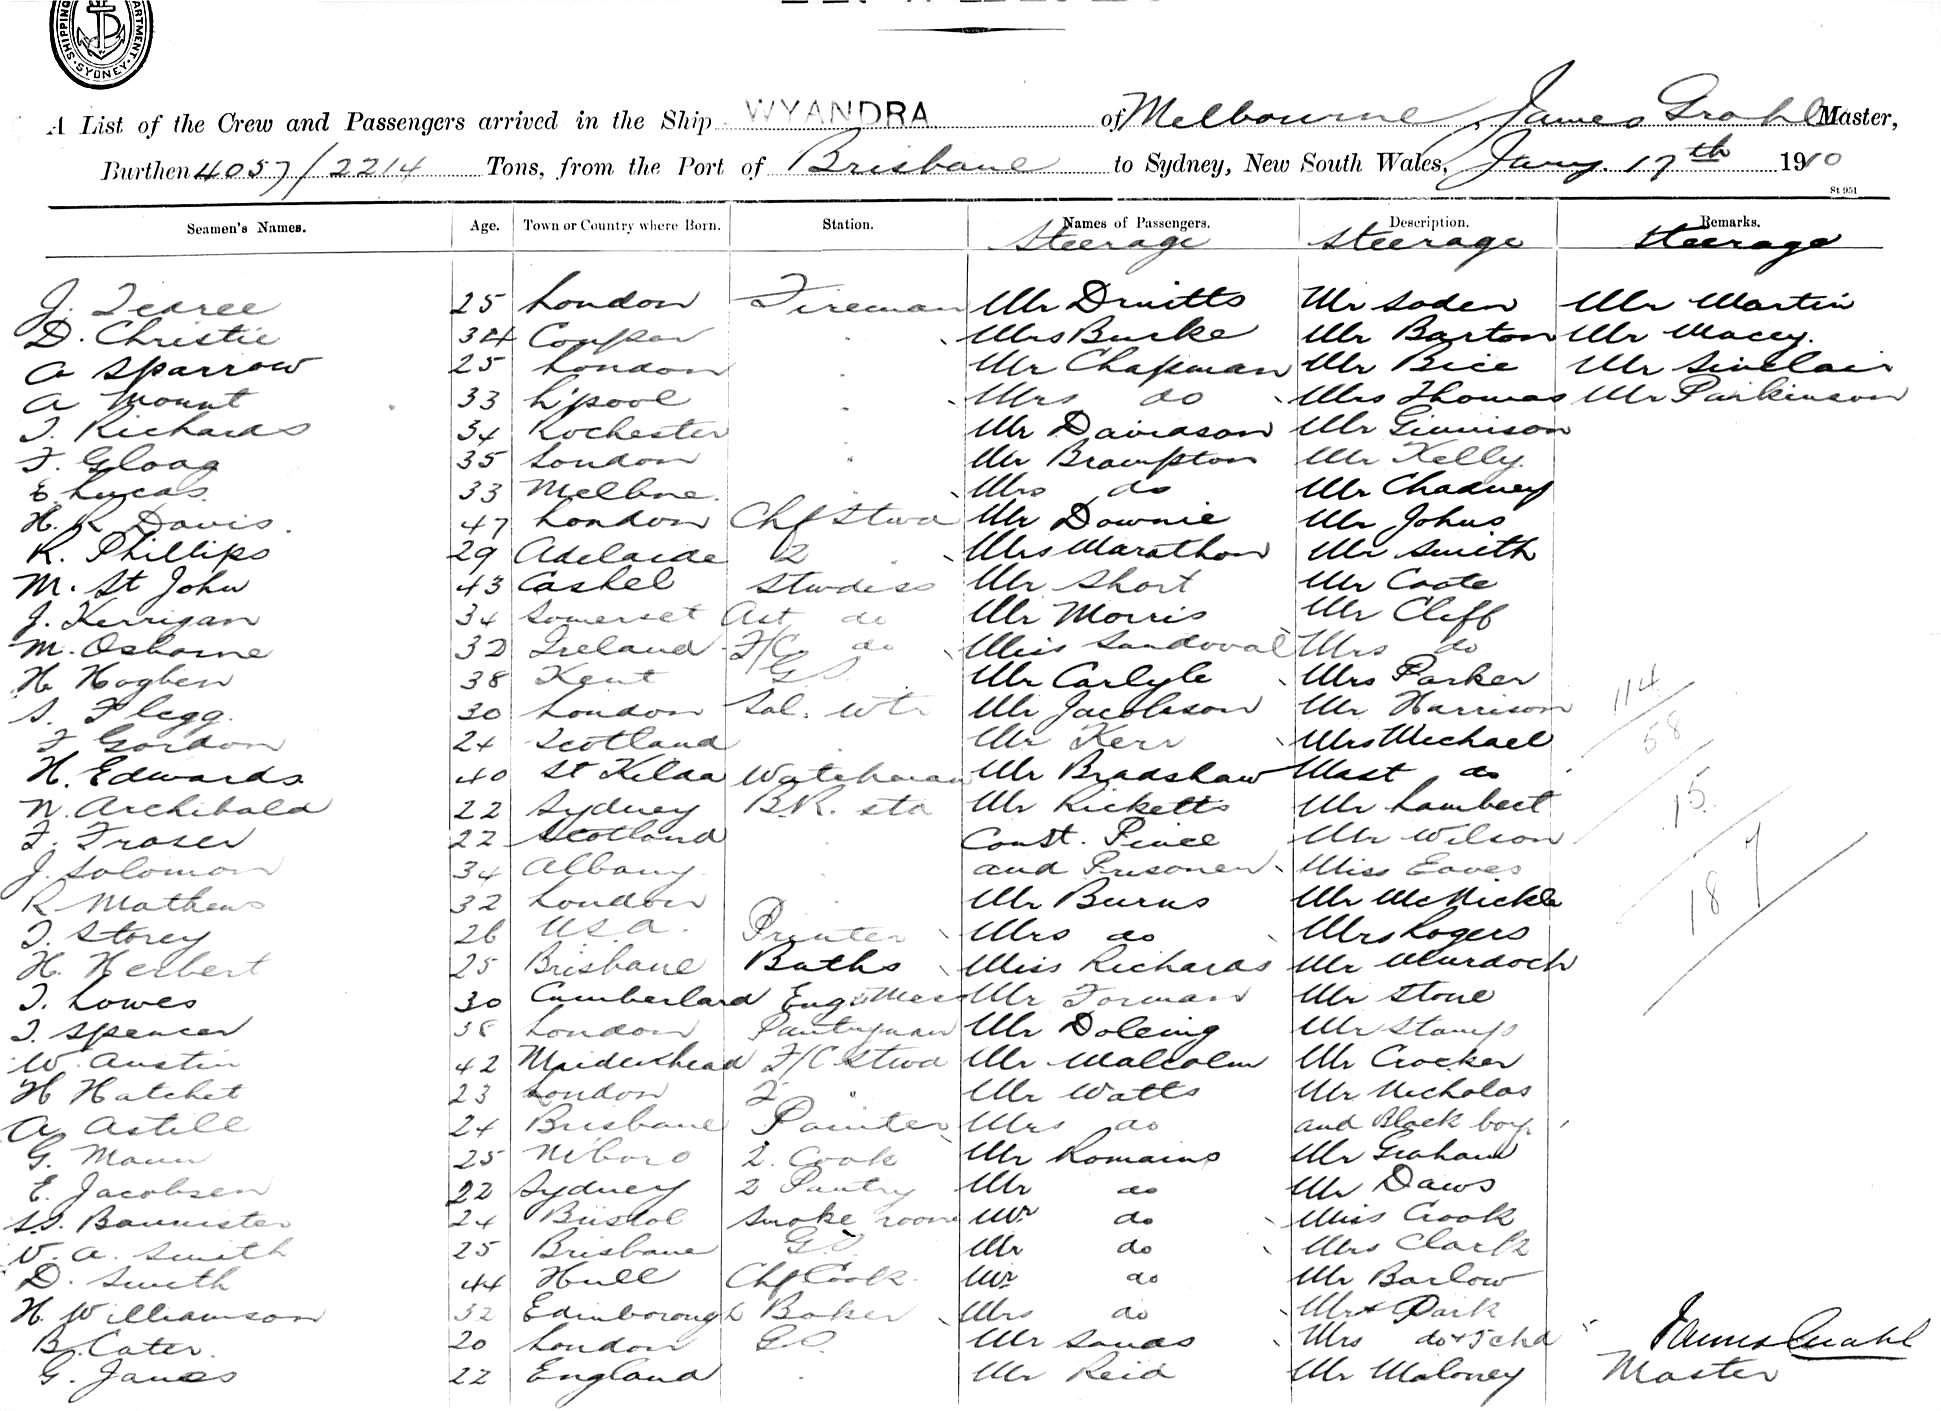 SHIPPING DEPARTMENT SYDNEY
A List of the Crew and Passengers arrived in the Ship WYANDRA of Melbourne, James Grahl Master,
Burthen 4057/2214 Tons, from the Port of Brisbane to Sydney, New South Wales, Jany. 17th 1910
St 951
Seamen's Names. Age. Town or Country where Born. Station. Names of Passengers. Description. Remarks.
Steerage Steerage Steerage
J. 25 London Fireman Mr Druitts Mr Soden Mr Martin
D. Christie 34 Coupar Mrs Burke Mr Barton Mr Macey.
A Sparrow 25 London Mr Chapman Mr Bice Mr Sinclair
A Mount 33 L'pool Mrs do Mrs Thomas Mr Parkinson
T. Richards 34 Rochester Mr Davidson Mr Gunnison
F. Gloag 35 London Mr Brampton Mr Kelly.
E. Lucas. 33 Melbne. Mrs do Mr Chadney
H. R Davis. 47 London Chf Stwd Mr Downie Mr Johns
R. Phillips 29 Adelaide 2 Mrs Marathon Mr Smith
M. St John 43 Cashel Stwdess Mr Short Mr Coote
J. Kerrigan 34 Somerset Ast do Mr Morris Mr Cliff
M. Osborne 32 Ireland F/C do Miss Sandoval Mrs do
H. Hogben 38 Kent GS Mr Carlyle Mrs Parker
S. Flegg. 30 London Sal. wtr Mr Jacobson Mr Harrison 114
F Gordon 24 Scotland Mr Kerr Mrs Michael 58
H. Edwards 40 St Kilda Watchman Mr Bradshaw Mast do
N. Archibald 22 Sydney B.R. std Mr Ricketts Mr Lambert 15
F. Fraser 22 Scotland Const. Mr Wilson
J. Solomon 34 Albany. and Prisoner Miss Eaves
R Mathews 32 London Mr Burns Mr McNickle 187
T. Storey 26 U.S.A. Printer Mrs do Mrs Rogers
H. Herbert 25 Brisbane Baths Miss Richards Mr Murdoch
T. Lowes 30 Cumberland Engrs Mess Mr Forman Mr Stone
T. Spencer 38 London Pantryman Mr Doleing Mr Stamp
W. Austin 42 Maidenhead F/C Stwd Mr Malcolm Mr Crocker
H Hatchet 23 London 2 " Mr Watts Mr Nicholas
A Astill 24 Brisbane Painter Mrs do and Black boy
G. Mann 25 N'boro 2. Cook Mr Romains Mr Graham
E. Jacobsen 22 Sydney 2 Pantry Mr do Mr Daws
Bannister 24 Bristol Smoke room Mr do Miss Crook
V. A. Smith 25 Brisbane G.S. Mr do Mrs Clark
D. Smith 44 Hull Chf Cook. Mr do Mr Barlow
H. Williamson 32 Edinborough Baker Mrs do Mr & Park
B. Cater. 20 London G.S. Mr Sands Mrs do & 5 chd James Grahl
G. James 22 England Mr Reid Mr Maloney Master